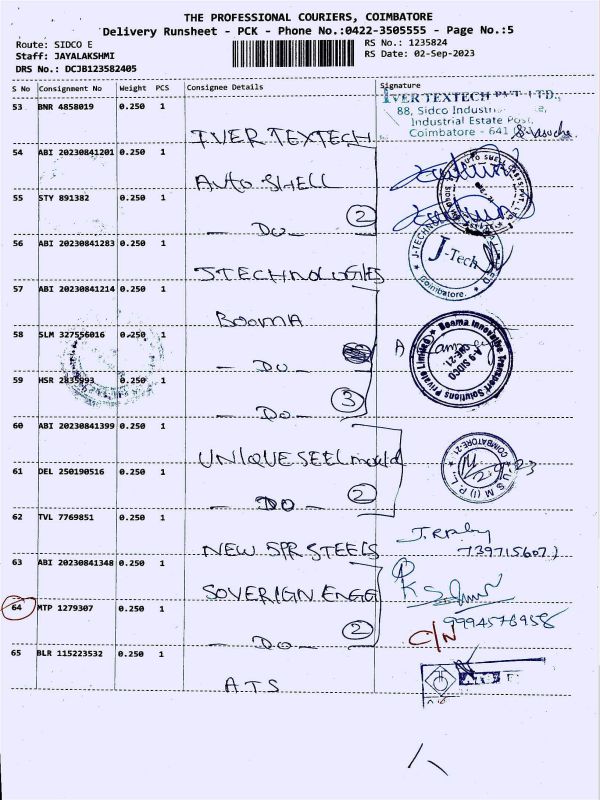 THE PROFESSIONAL COURIERS, COIMBATORE
Delivery Runsheet - PCK - Phone No.:0422-3505555 - Page No.:5
Route: SIDCO E
RS No.: 1235824
Staff: JAYALAKSHMI
RS Date: 02-Sep-2023
DRS No.: DCJB123582405
S No Consignment No Weight PCS Consignee Details Signature
53 BNR 4858019 0.250 1
IVER TEXTECH
IVER TEXTECH PVT. LTD.,
88, Sidco Industri
Industrial Estate Post,
Coimbatore - 641
54 ABI 20230841201 0.250 1
AUTO SHELL
55 STY 891382 0.250 1
- DO - 2
56 ABI 20230841283 0.250 1
JTECHNOLOGIES
J-Tech
Coimbatore.
57 ABI 20230841214 0.250 1
BOOMA
58 SLM 327556016 0.250 1
- DO -
Booma Innovative Transport Solutions Private Limited
A-9 SIDCO
CBE-21.
59 HSR 2835993 0.250 1
- DO - 3
60 ABI 20230841399 0.250 1
UNIQUE SEEL mould
COIMBATORE-21.
U S M (I) P L
61 DEL 250190516 0.250 1
- DO - 2
62 TVL 7769851 0.250 1
NEW SPR STEELS
63 ABI 20230841348 0.250 1
SOVERIGN ENGG
64 MTP 1279307 0.250 1
- DO - 2
9994576958
C/N
65 BLR 115223532 0.250 1
ATS